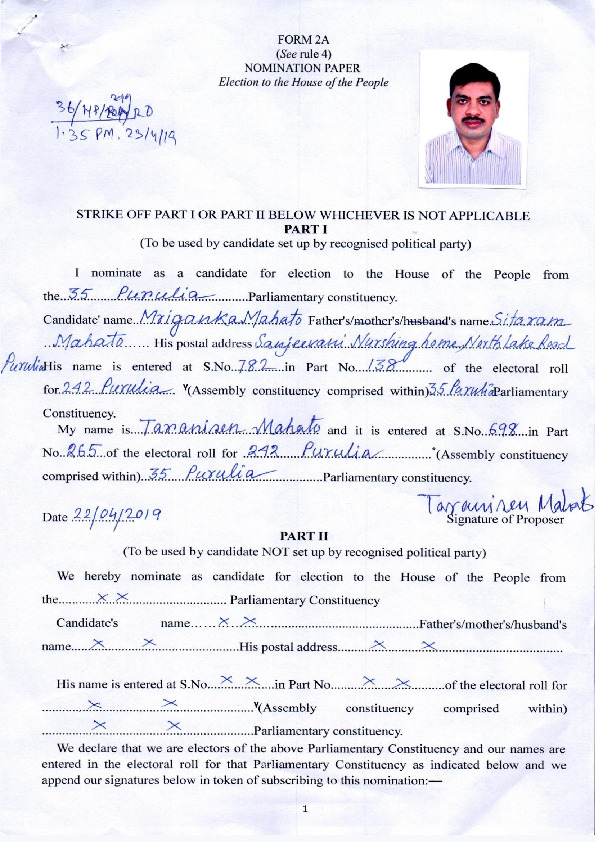 FORM 2A
(See rule 4)
NOMINATION PAPER
Election to the House of the People
36/NP/RD
1.35 PM. 23/4/19
STRIKE OFF PART I OR PART II BELOW WHICHEVER IS NOT APPLICABLE
PART I
(To be used by candidate set up by recognised political party)
I nominate as a candidate for election to the House of the People from
the..35.......Purulia...........Parliamentary constituency.
Candidate' name..Mriganka Mahato Father's/mother's/husband's name.Sitaram
..Mahato...... His postal address Sanjeevani Nurshing home, North Lake Road
Purulia His name is entered at S.No..782...in Part No...138........... of the electoral roll
for.242 Purulia.. (Assembly constituency comprised within)35 Purulia Parliamentary
Constituency.
My name is..Taranisen Mahato and it is entered at S.No..698...in Part
No..265..of the electoral roll for ..242......Purulia..............*(Assembly constituency
comprised within)..35....Purulia...............Parliamentary constituency.
Taranisen Mahato
Date 22/04/2019 Signature of Proposer
PART II
(To be used by candidate NOT set up by recognised political party)
We hereby nominate as candidate for election to the House of the People from
the.........× ×........................ Parliamentary Constituency
Candidate's name......×..×.......................................Father's/mother's/husband's
name.....×..........×....................His postal address.........×..........×..............................
His name is entered at S.No...×...×...in Part No........×.....×........of the electoral roll for
...........×...............×..................(Assembly constituency comprised within)
............×...............×..................Parliamentary constituency.
We declare that we are electors of the above Parliamentary Constituency and our names are
entered in the electoral roll for that Parliamentary Constituency as indicated below and we
append our signatures below in token of subscribing to this nomination:—
1